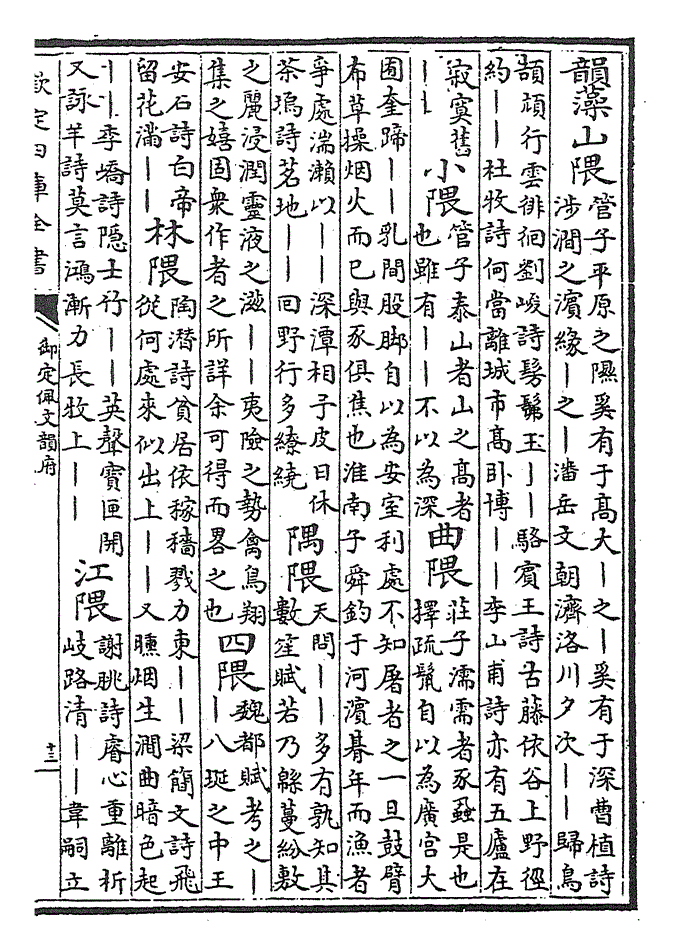 韻藻山隈
管子平原之隰奚有于高大丨之丨奚有于深曹植詩
涉澗之濱緣丨之丨潘岳文朝濟洛川夕次丨丨歸鳥
頡頏行雲徘徊劉峻詩髣髴玉丨丨駱賓王詩古藤依谷上野徑
約丨丨杜牧詩何當離城市高卧博丨丨李山甫詩亦有五廬在
寂寞舊
丨丨
小隈
管子泰山者山之高者
也雖有丨丨不以為深
曲隈
莊子濡需者豕蝨是也
擇疏鬣自以為廣宫大
囿奎蹄丨丨乳間股脚自以為安室利處不知屠者之一旦鼓臂
布草操烟火而已與豕俱焦也淮南子舜釣于河濱朞年而漁者
爭處湍瀨以丨丨深潭相予皮日休
茶塢詩茗地丨丨回野行多繚繞
隅隈
天問丨丨多有孰知其
數笙賦若乃緜蔓紛敷
之麗浸潤靈液之滋丨丨夷險之勢禽鳥翔
集之嬉固衆作者之所詳余可得而畧之也
四隈
魏都賦考之丨
丨八埏之中王
安石詩白帝
留花滿丨丨
林隈
陶潛詩貧居依稼穡戮力東丨丨梁簡文詩飛
從何處來似出上丨丨又曛烟生澗曲暗色起
丨丨李嶠詩隱士竹丨丨英聲寶匣開
又詠羊詩莫言鴻漸力長牧上丨丨
江隈
謝脁詩睿心重離析
岐路清丨丨韋嗣立
欽定四庫全書
御定佩文韻府
十三